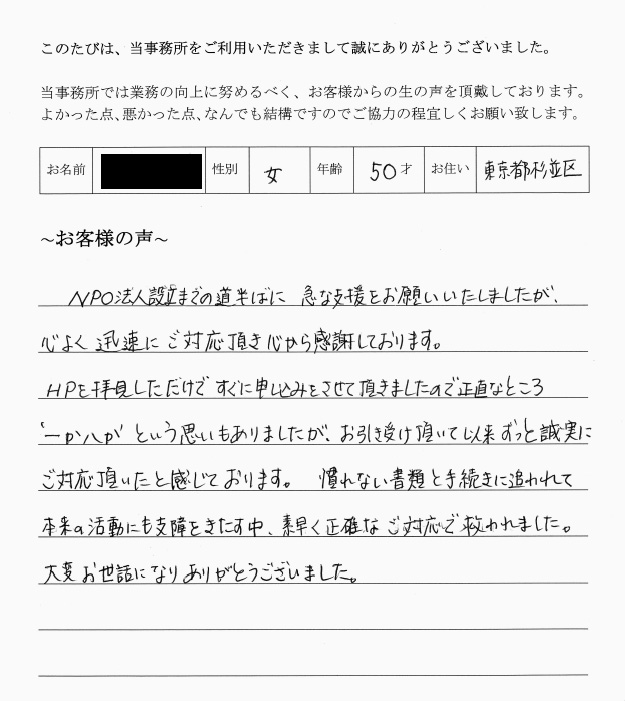 このたびは、当事務所をご利用いただきまして誠にありがとうございました。
当事務所では業務の向上に努めるべく、お客様からの生の声を頂戴しております。
よかった点、悪かった点、なんでも結構ですのでご協力の程宜しくお願い致します。
お名前 性別 女 年齢 50才 お住い 東京都杉並区
~お客様の声~
NPO法人設立までの道半ばに 急な支援をお願いいたしましたが、
心よく 迅速に ご対応頂き心から感謝しております。
HPを拝見しただけで すぐに申し込みをさせて頂きましたので正直なところ
‘一か八か’ という思いもありましたが、お引き受け頂いて以来 ずっと誠実に
ご対応頂いたと感じております。 慣れない書類と手続きに追われて
本来の活動にも支障をきたす中、素早く正確な ご対応で 救われました。
大変お世話になりありがとうございました。